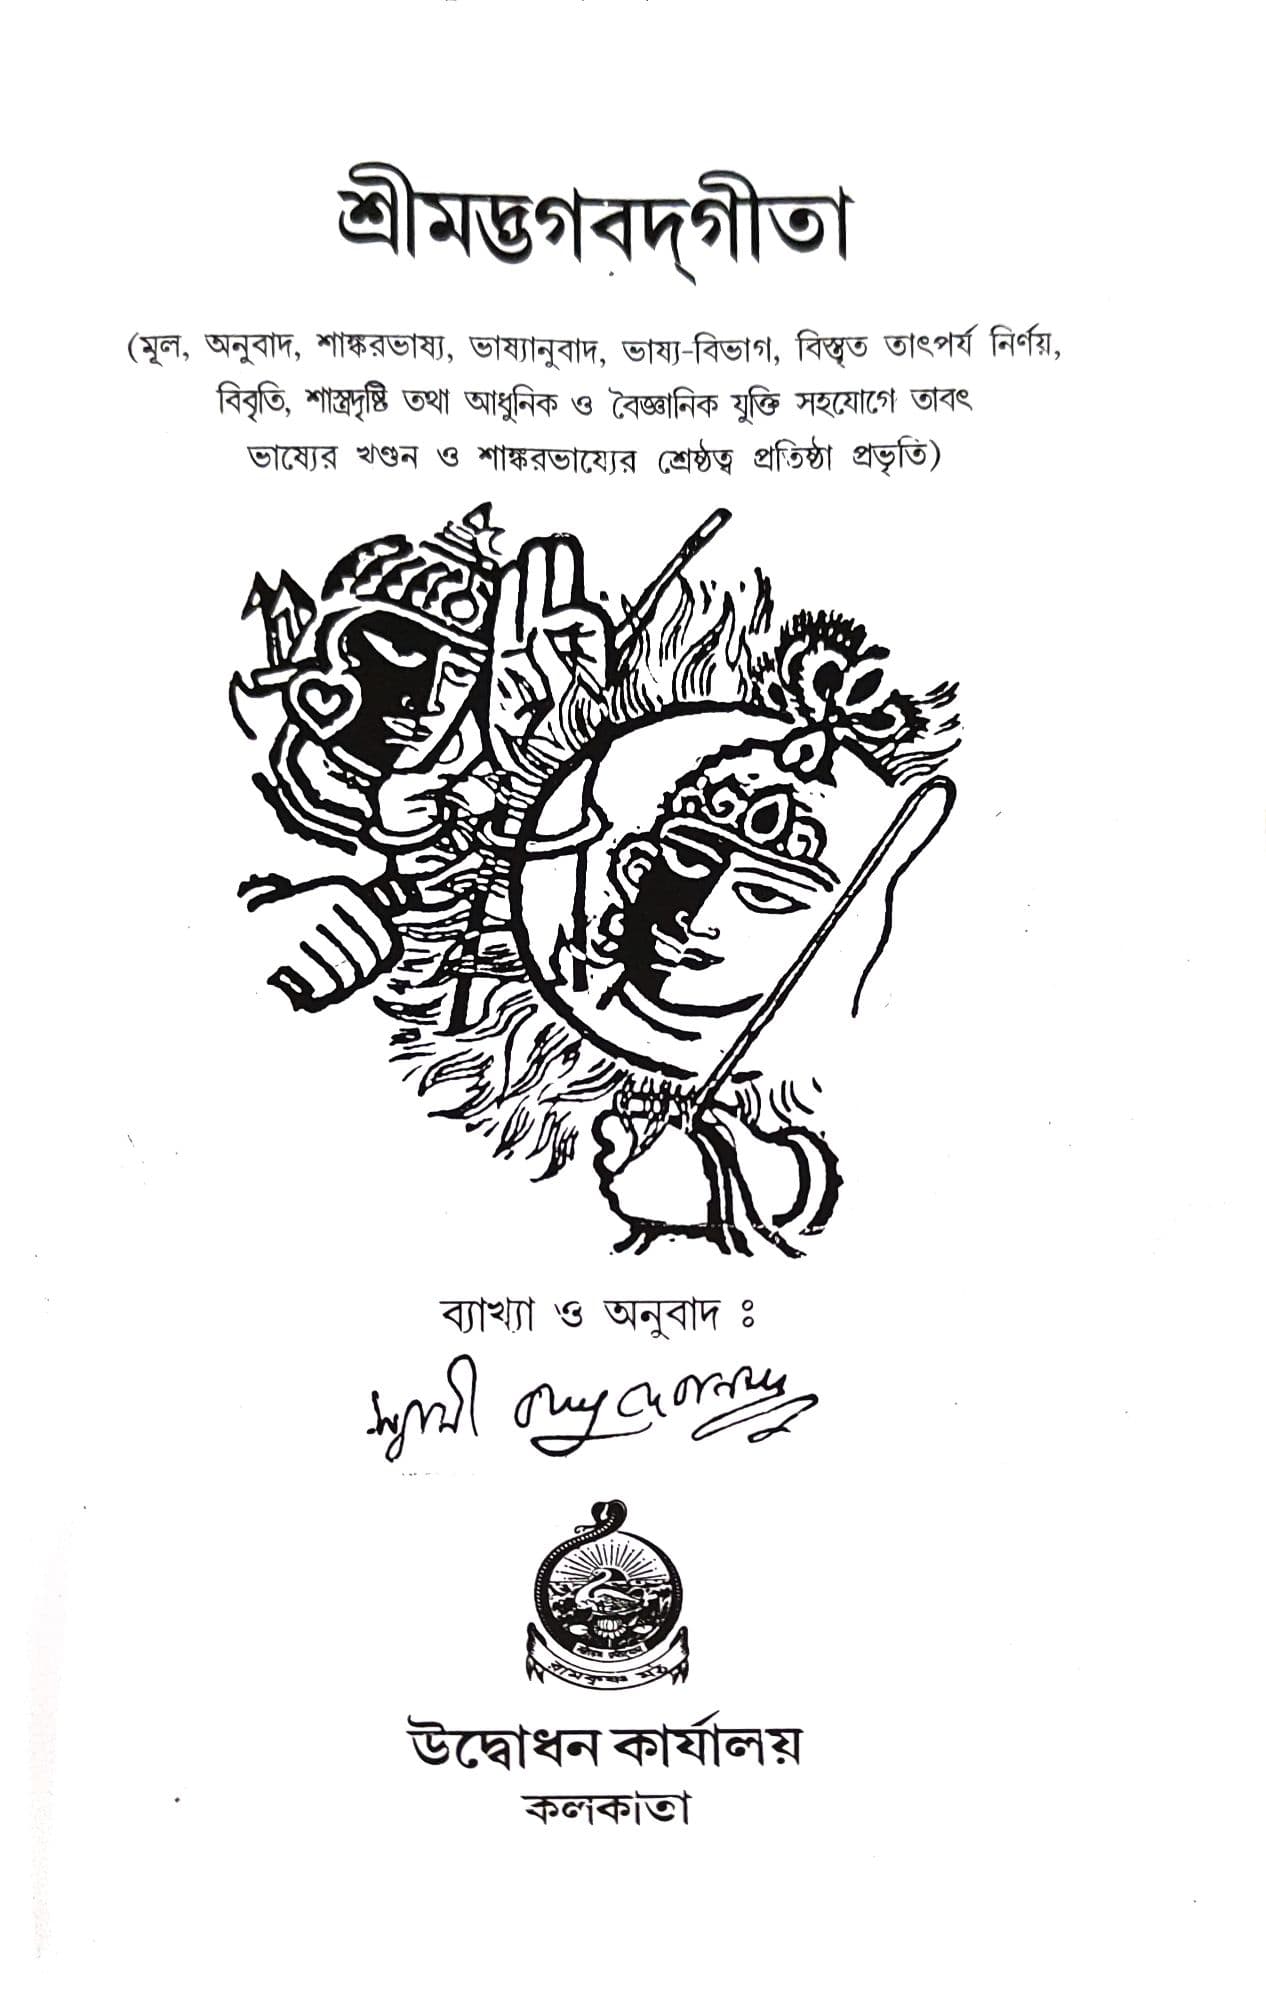 শ্রীমদ্ভগবদ্‌গীতা
(মূল, অনুবাদ, শাঙ্করভাষ্য, ভাষ্যানুবাদ, ভাষ্য-বিভাগ, বিস্তৃত তাৎপর্য নির্ণয়,
বিবৃতি, শাস্ত্রদৃষ্টি তথা আধুনিক ও বৈজ্ঞানিক যুক্তি সহযোগে তাবৎ
ভাষ্যের খণ্ডন ও শাঙ্করভাষ্যের শ্রেষ্ঠত্ব প্রতিষ্ঠা প্রভৃতি)
ব্যাখ্যা ও অনুবাদ ঃ
স্বামী বাসুদেবানন্দ
রামকৃষ্ণ মঠ
উদ্বোধন কার্যালয়
কলকাতা